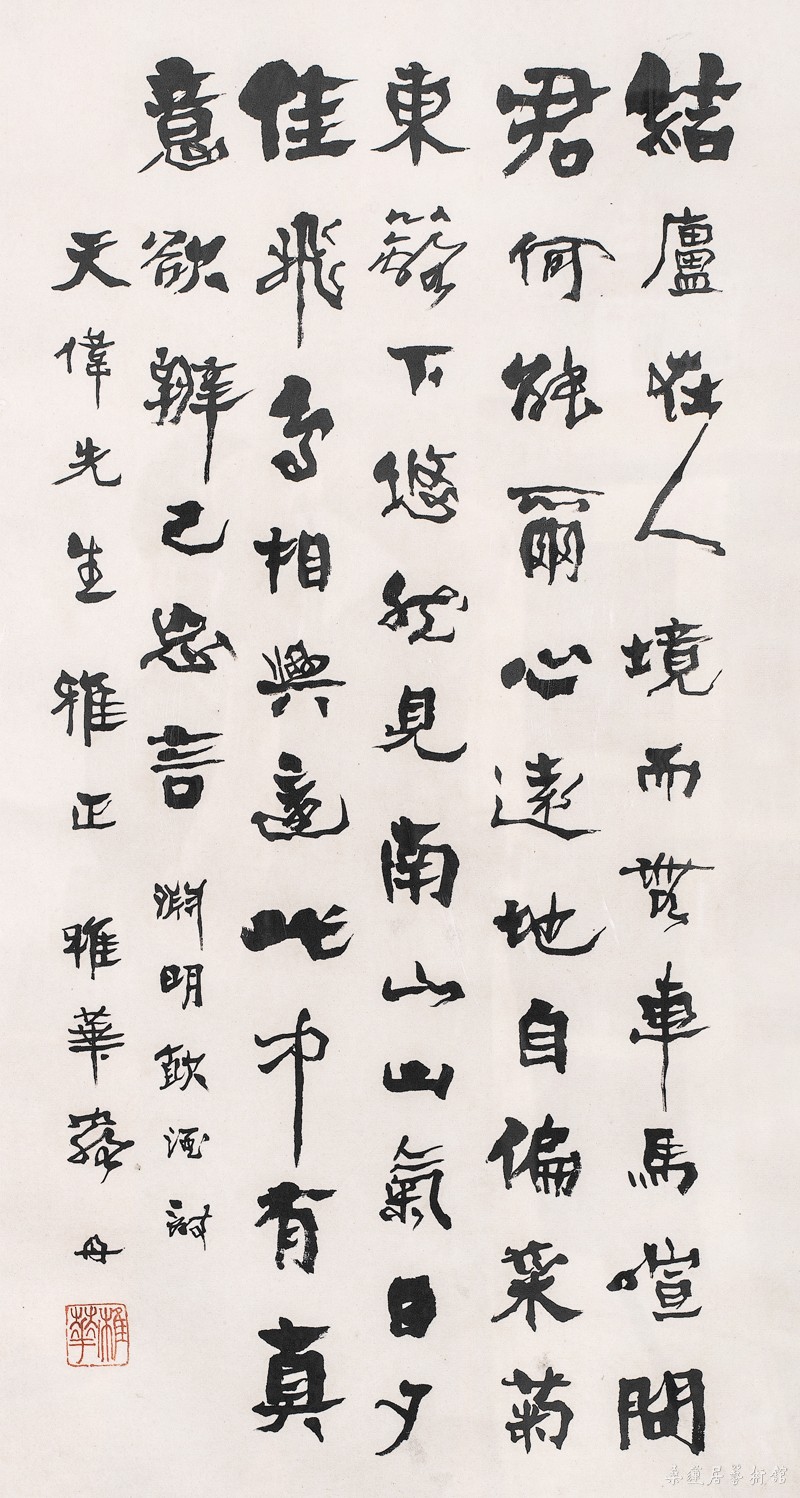 結廬在人境而無車馬喧問
君何能爾心遠地自偏采菊
東籬下悠然見南山山氣日夕
佳飛鳥相與還此中有真
意欲辨已忘言 淵明飲酒詩
天偉先生雅正 稚華羅丹
稚華
居藝術館